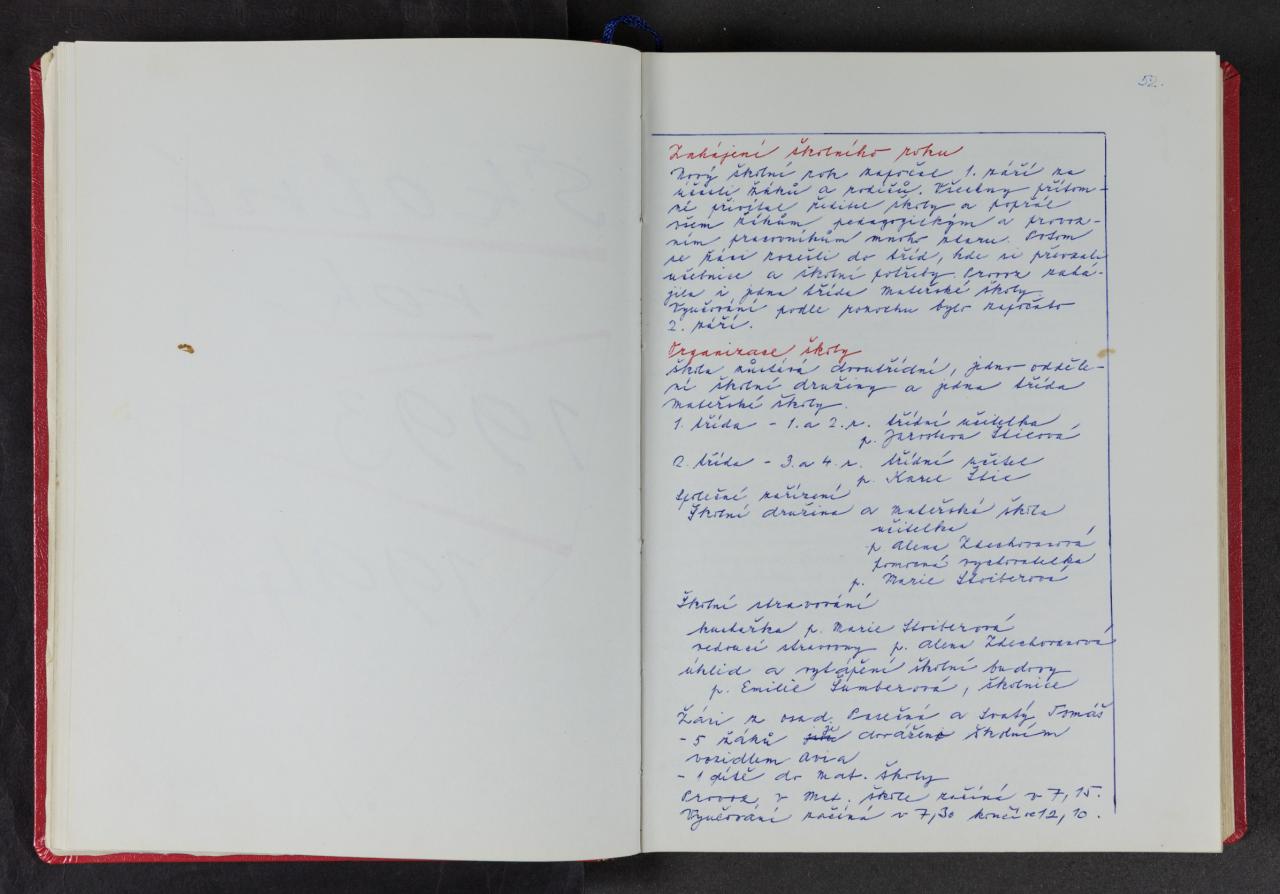 52.
Zahájení školního roku
Nový školní rok započal 1. září za
účasti žáků a rodičů. Všechny přítom-
né přivítal ředitel školy a popřál
všem žákům, pedagogickým a provoz-
ním pracovníkům mnoho zdaru. Potom
se žáci rozešli do tříd, kde si převzali
učebnice a školní potřeby. Provoz zahá-
jila i jedna třída mateřské školy.
Vyučování podle rozvrhu bylo započato
2. září.
Organizace školy
Škola zůstává dvoutřídní, jedno odděle-
ní školní družiny a jedna třída
mateřské školy.
1. třída - 1. a 2. r. třídní učitelka
p. Jaroslava Šticová
2. třída - 3. a 4. r. třídní učitel
p. Karel Štic
Společné zařízení
Školní družina a mateřská škola
učitelka
p. Alena Zdechovanová
pomocná vychovatelka
p. Marie Stoiberová
Školní stravování
kuchařka p. Marie Stoiberová
vedoucí stravovny p. Alena Zdechovanová
úklid a vytápění školní budovy
p. Emilie Šumberová, školnice
Žáci z osad Pasečná a Svatý Tomáš
- 5 žáků je dovážen školním
vozidlem Avia
- 1 dítě do mat. školy
Provoz v mat. škole začíná v 7,15.
Vyučování začíná v 7,30 končí ve 12,10.